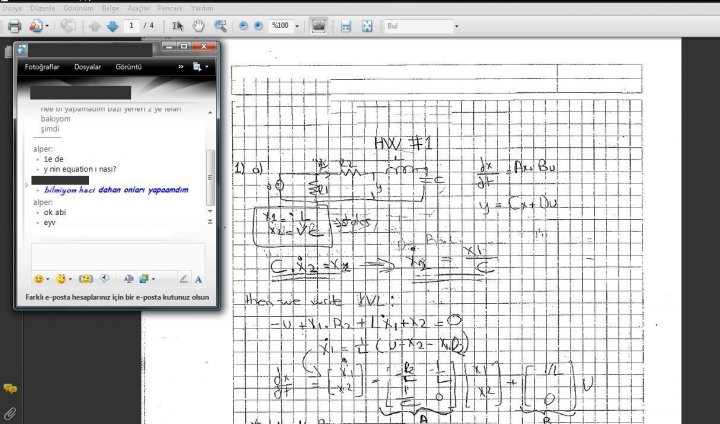 Dosya Düzenle Görünüm Belge Araçlar Pencere Yardım
1 / 4
%100
Bul
Fotoğraflar Dosyalar Görüntü »
bakıyom
şimdi
alper:
1e de
y nin equation ı nası?
bilmiyom hacı dahan onları yapaamdım
alper:
ok abi
eyv
A
Farklı e-posta hesaplarınız için bir e-posta kutunuz olsun
HW #1
1) a)
R2
L
C
y
dx/dt = Ax + Bu
y = Cx + Du
x1 = iL
x2 = VC
states
C.ẋ2 = x1 ⟹ ẋ2 = x1/C
then we write KVL:
-u + x1.R2 + Lẋ1 + x2 = 0
ẋ1 = 1/L (u - x2 - x1.R2)
dx/dt = [ẋ1 ẋ2] = [-R2/L -1/L 1/C 0] [x1 x2] + [1/L 0] U
A B